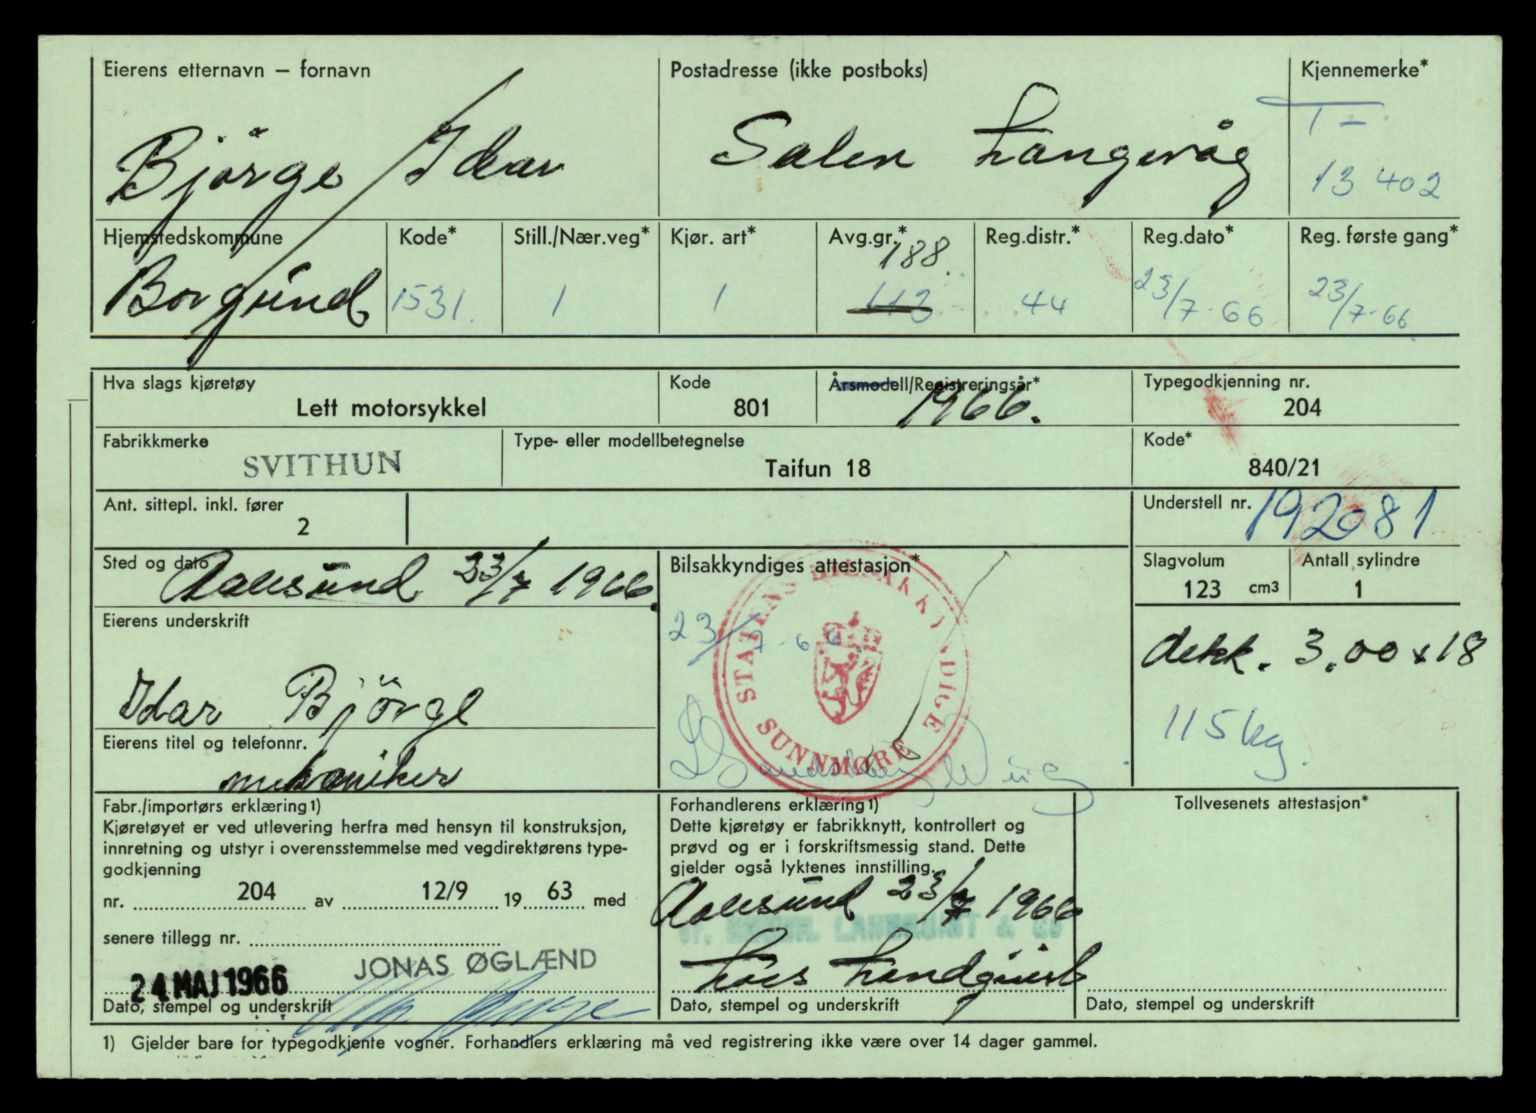 Eierens etternavn – fornavn
Postadresse (ikke postboks)
Kjennemerke*
Björge / Idar
Salen Langevåg
T-
13 402
Hjemstedskommune
Kode*
Still./Nær.veg*
Kjør. art*
Avg.gr.*
Reg.distr.*
Reg.dato*
Reg. første gang*
Borgund
1531.
1
1
188.
113
44
23/7-66
23/7-66
Hva slags kjøretøy
Lett motorsykkel
Kode
801
Årsmodell/Registreringsår*
1966.
Typegodkjenning nr.
204
Fabrikkmerke
SVITHUN
Type- eller modellbetegnelse
Taifun 18
Kode*
840/21
Ant. sittepl. inkl. fører
2
Understell nr.
192081
Sted og dato
Aalesund 23/7 1966.
Bilsakkyndiges attestasjon*
STATENS BILSAKKYNDIGE
SUNNMØRE
23/7-66.
Slagvolum
123 cm3
Antall sylindre
1
Eierens underskrift
Idar Björge
dekk. 3,00 x 18
115 kg.
Eierens titel og telefonnr.
mekaniker
Fabr./importørs erklæring1)
Kjøretøyet er ved utlevering herfra med hensyn til konstruksjon,
innretning og utstyr i overensstemmelse med vegdirektørens type-
godkjenning
nr. 204 av 12/9 19 63 med
senere tillegg nr.
24 MAJ 1966
JONAS ØGLÆND
Dato, stempel og underskrift
Forhandlerens erklæring1)
Dette kjøretøy er fabrikknytt, kontrollert og
prøvd og er i forskriftsmessig stand. Dette
gjelder også lyktenes innstilling.
Aalesund 23/7 1966
Dato, stempel og underskrift
Tollvesenets attestasjon*
Dato, stempel og underskrift
1) Gjelder bare for typegodkjente vogner. Forhandlers erklæring må ved registrering ikke være over 14 dager gammel.